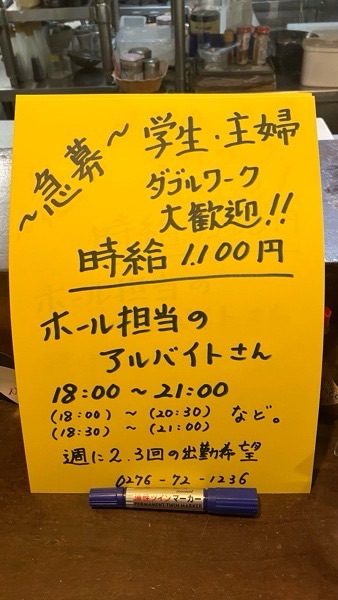 ～急募～
学生・主婦
ダブルワーク
大歓迎!!
時給 1.100円
ホール担当の
アルバイトさん
18:00 ～ 21:00
(18:00) ～ (20:30)
(18:30) ～ (21:00)
など。
週に2.3回の出勤希望
0276-72-1236
油性ツインマーカー
PERMANENT TWIN MARKER